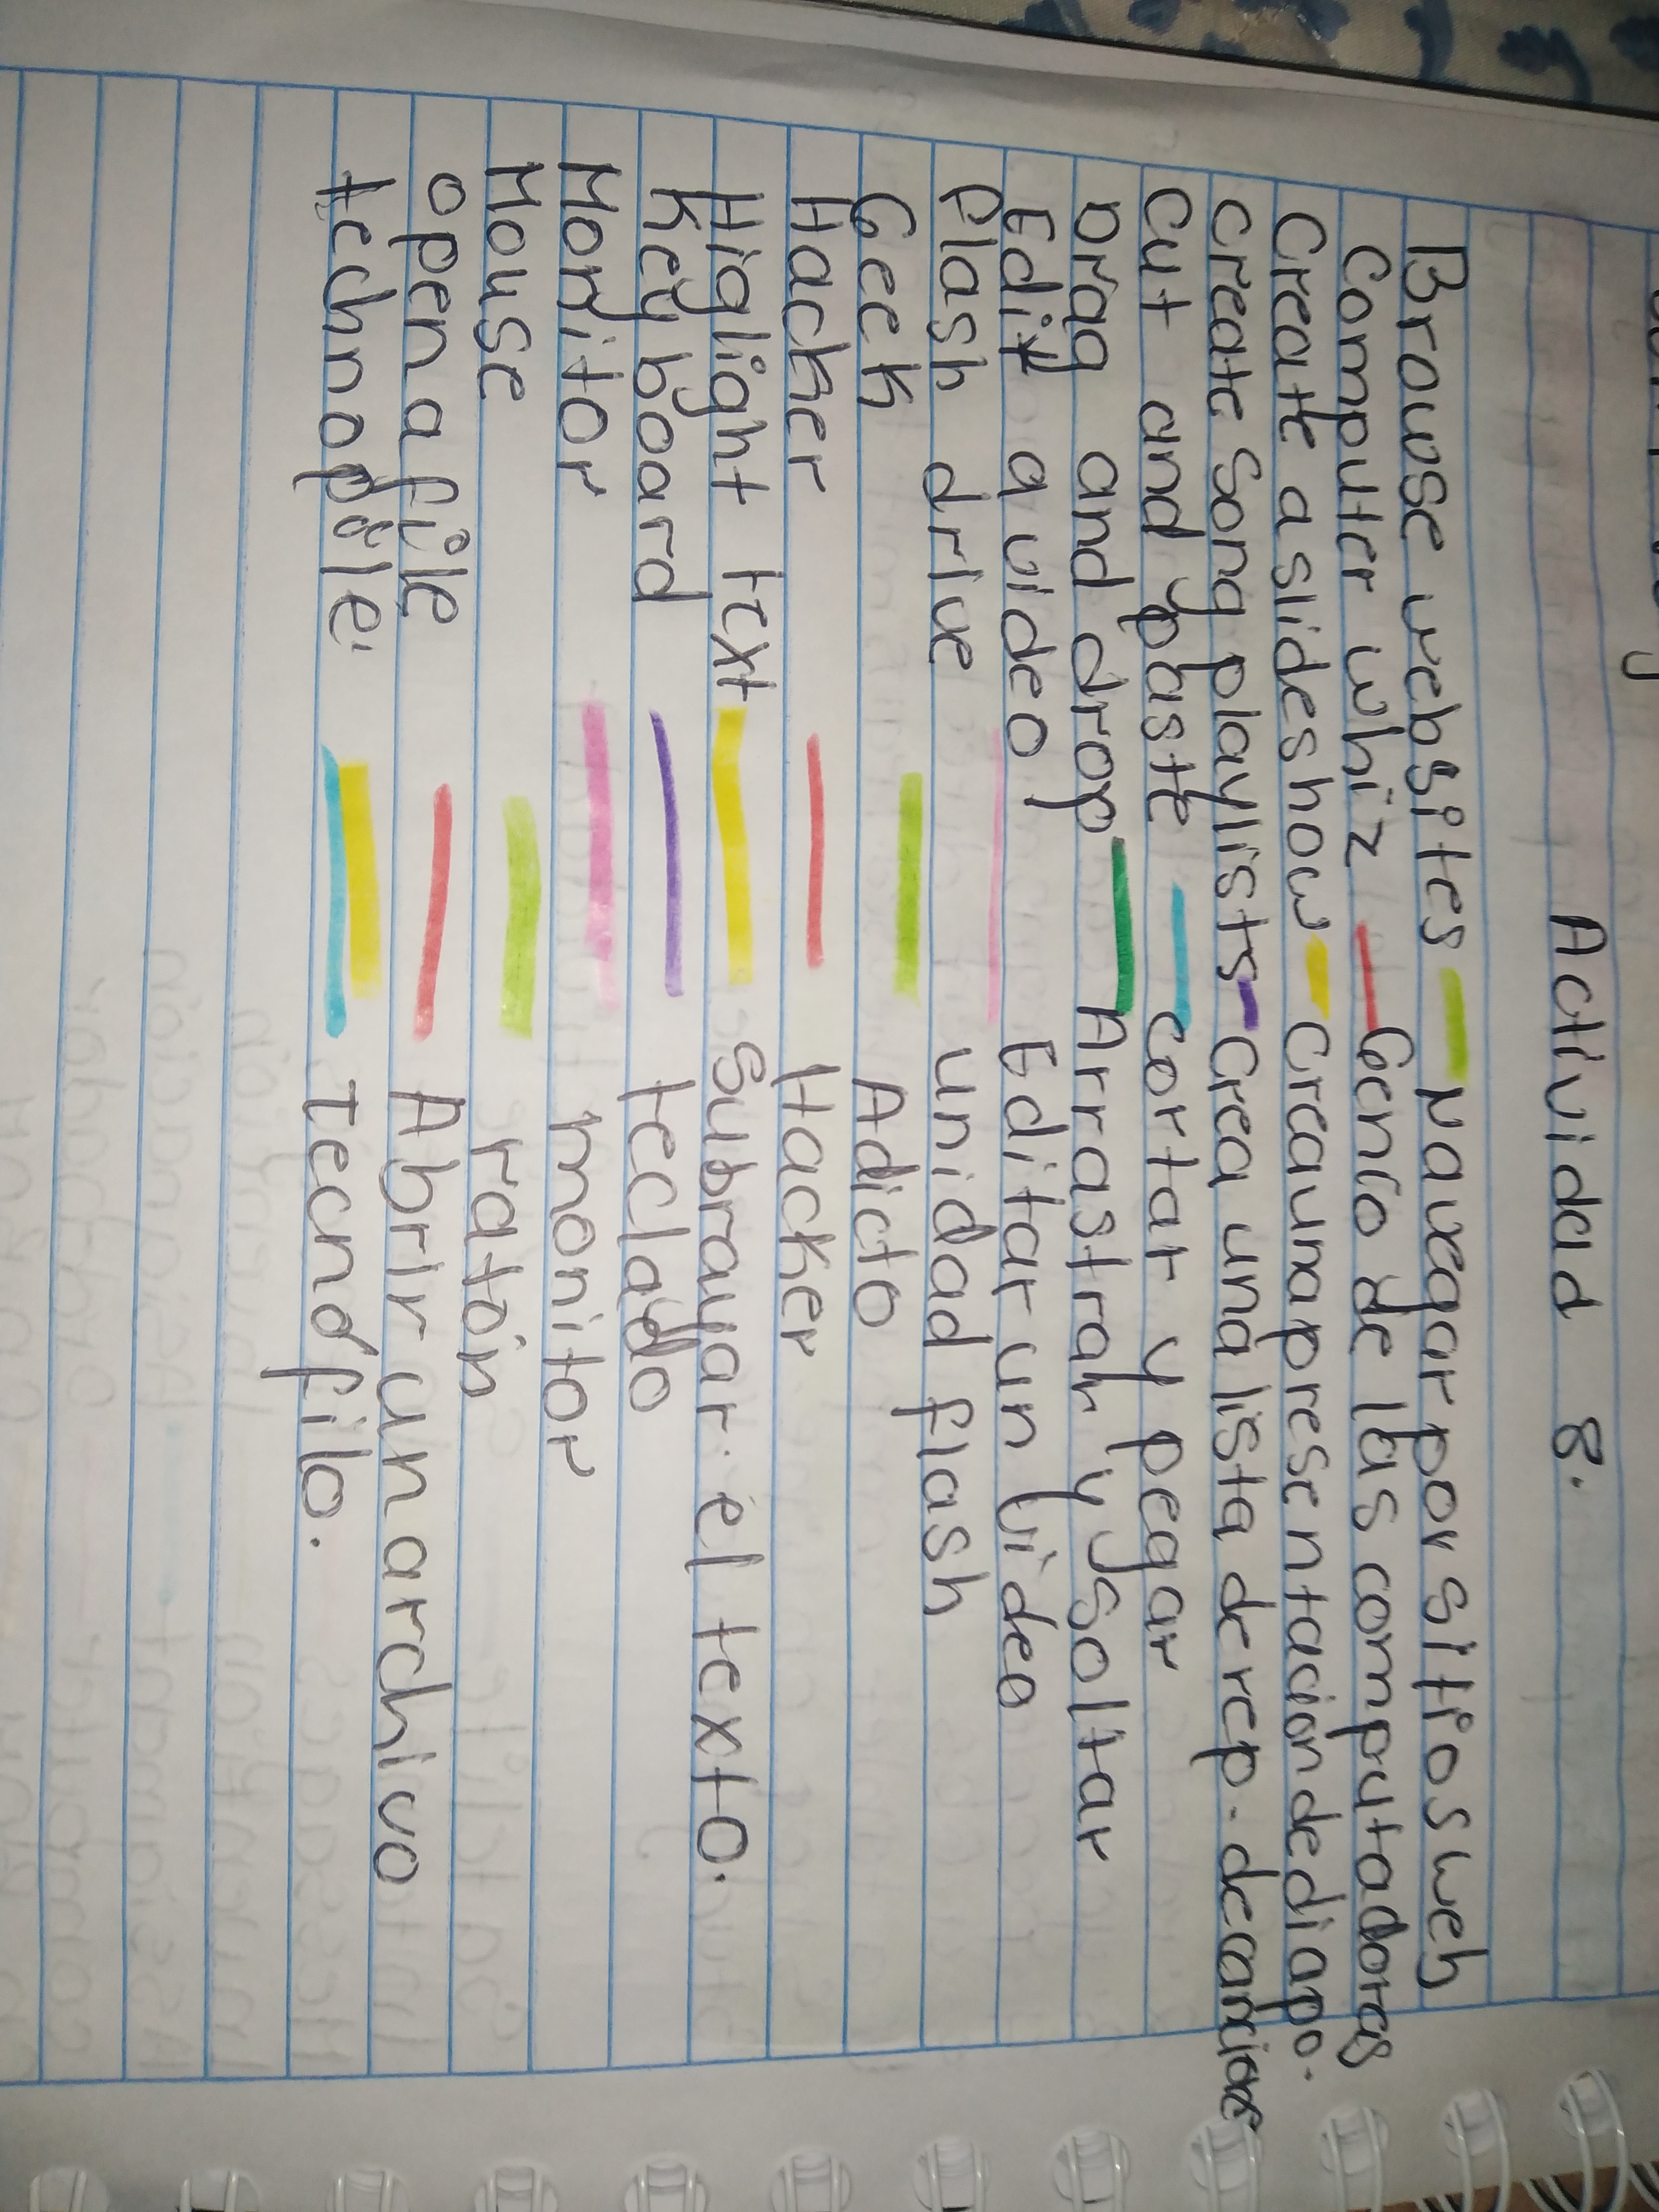 Actividad 8.
Browse websites navegar por sitios web
Computer whiz Genio de las computadoras
Create a slideshow Crea una presentacion de diapo.
Create song playlists Crea una lista de rep. de canciones
Cut and paste cortar y pegar
Drag and drop Arrastrar y soltar
Edit a video Editar un video
Flash drive unidad flash
Geek Adicto
Hacker Hacker
Higlight text Subrayar el texto.
Keyboard teclado
Monitor monitor
Mouse ratón
open a file Abrir un archivo
technopile. Tecnofilo.